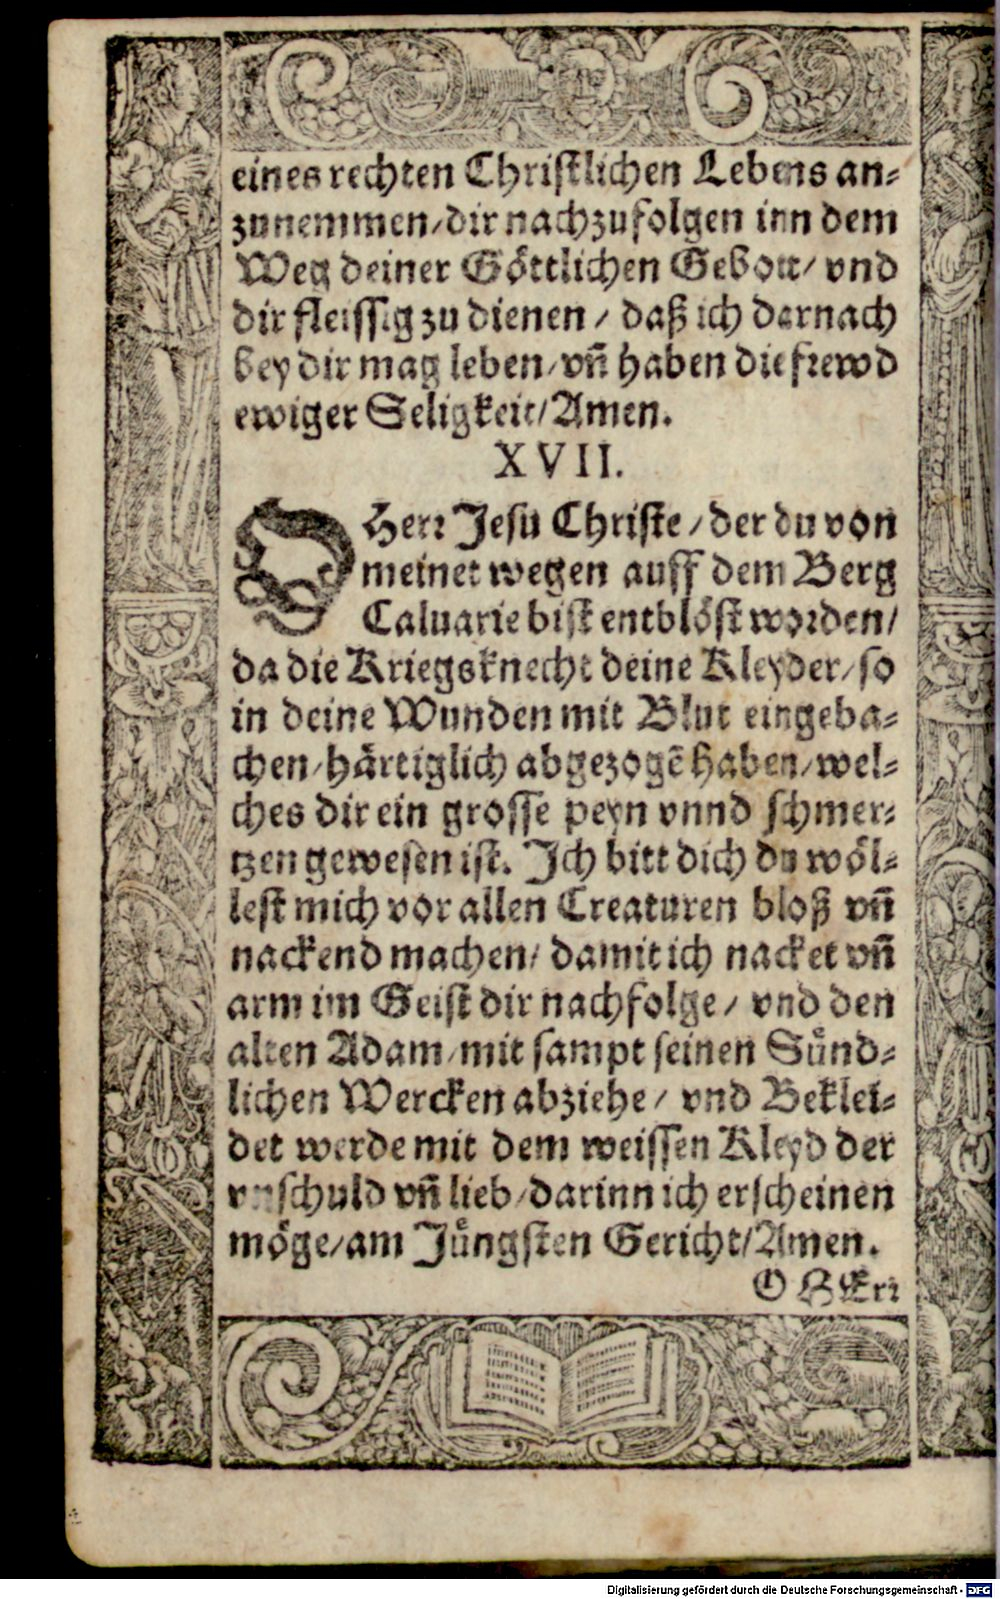 eines rechten Christlichen Lebens an⸗
zunemmen/dir nachzufolgen inn dem
Weg deiner Göttlichen Gebott/ vnd
dir fleissig zu dienen / daß ich darnach
bey dir mag leben/vñ haben die frewd
ewiger Seligkeit/Amen.
XVII.
O Herr Jesu Christe/der du von
meinet wegen auff dem Berg
Caluarie bist entblöst worden/
da die Kriegsknecht deine Kleyder/so
in deine Wunden mit Blut eingeba⸗
chen/härtiglich abgezogẽ haben/wel⸗
ches dir ein grosse peyn vnnd schmer⸗
tzen gewesen ist. Ich bitt dich du wöl⸗
lest mich vor allen Creaturen bloß vñ
nackend machen/ damit ich nacket vñ
arm im Geist dir nachfolge/ vnd den
alten Adam/mit sampt seinen Sünd⸗
lichen Wercken abziehe/ vnd Beklei⸗
det werde mit dem weissen Kleyd der
vnschuld vñ lieb/darinn ich erscheinen
möge/am Jüngsten Gericht/Amen.
O HErr
Digitalisierung gefördert durch die Deutsche Forschungsgemeinschaft - DFG